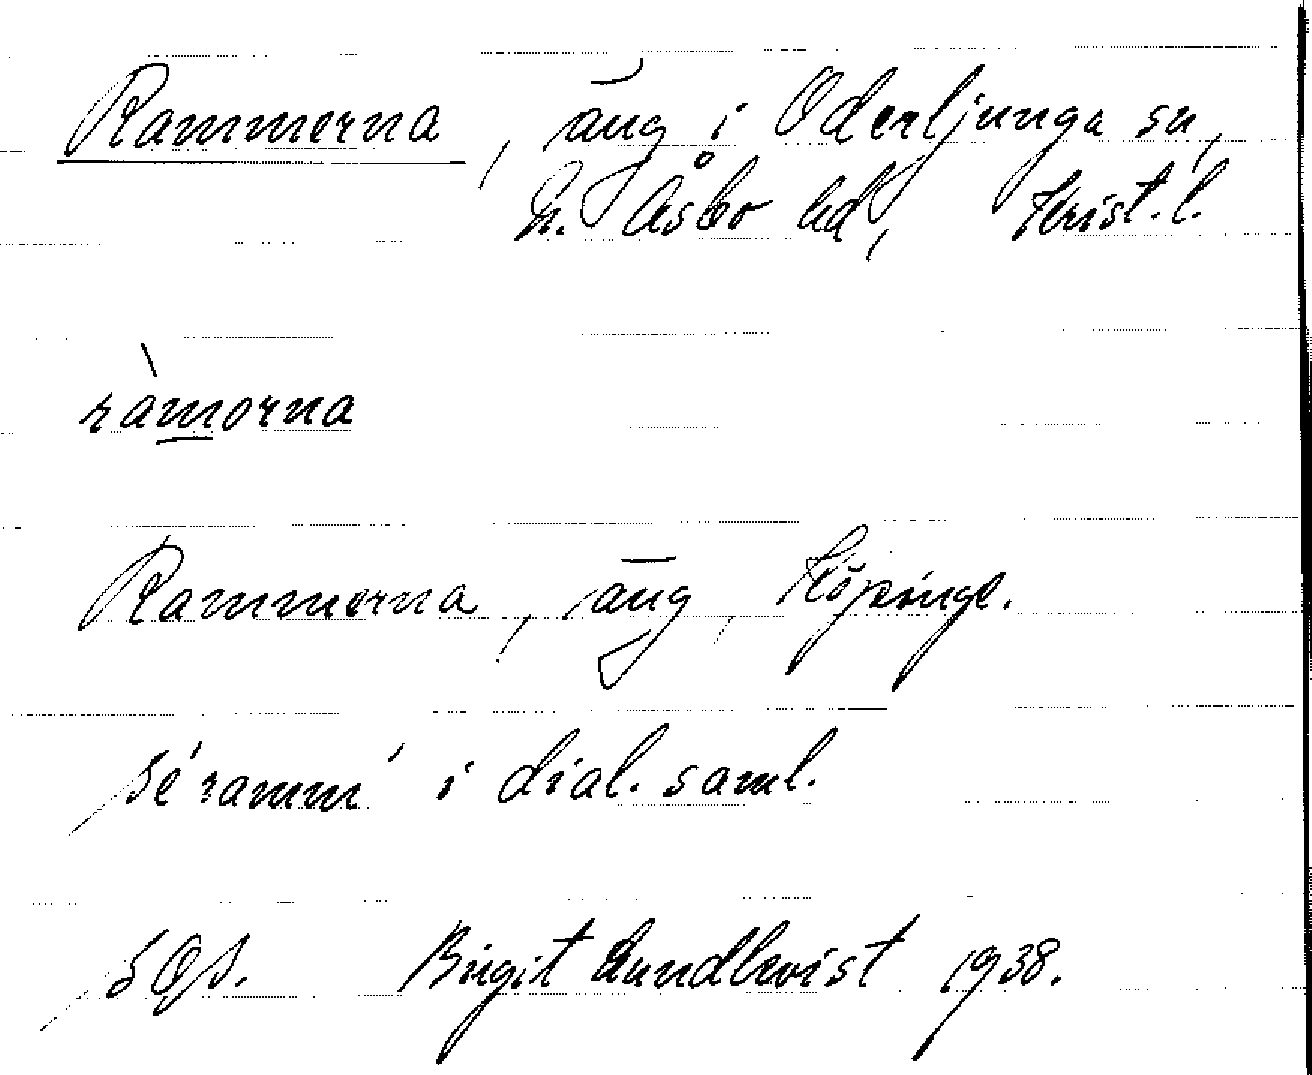 Rammerna, äng i Oderljunga sn,
N. Åsbo hd, Krist. l.
ràmorna
Rammerna, äng, Köpinge.
se 'ramm' i dial. saml.
SOS. Birgit Lundkvist 1938.